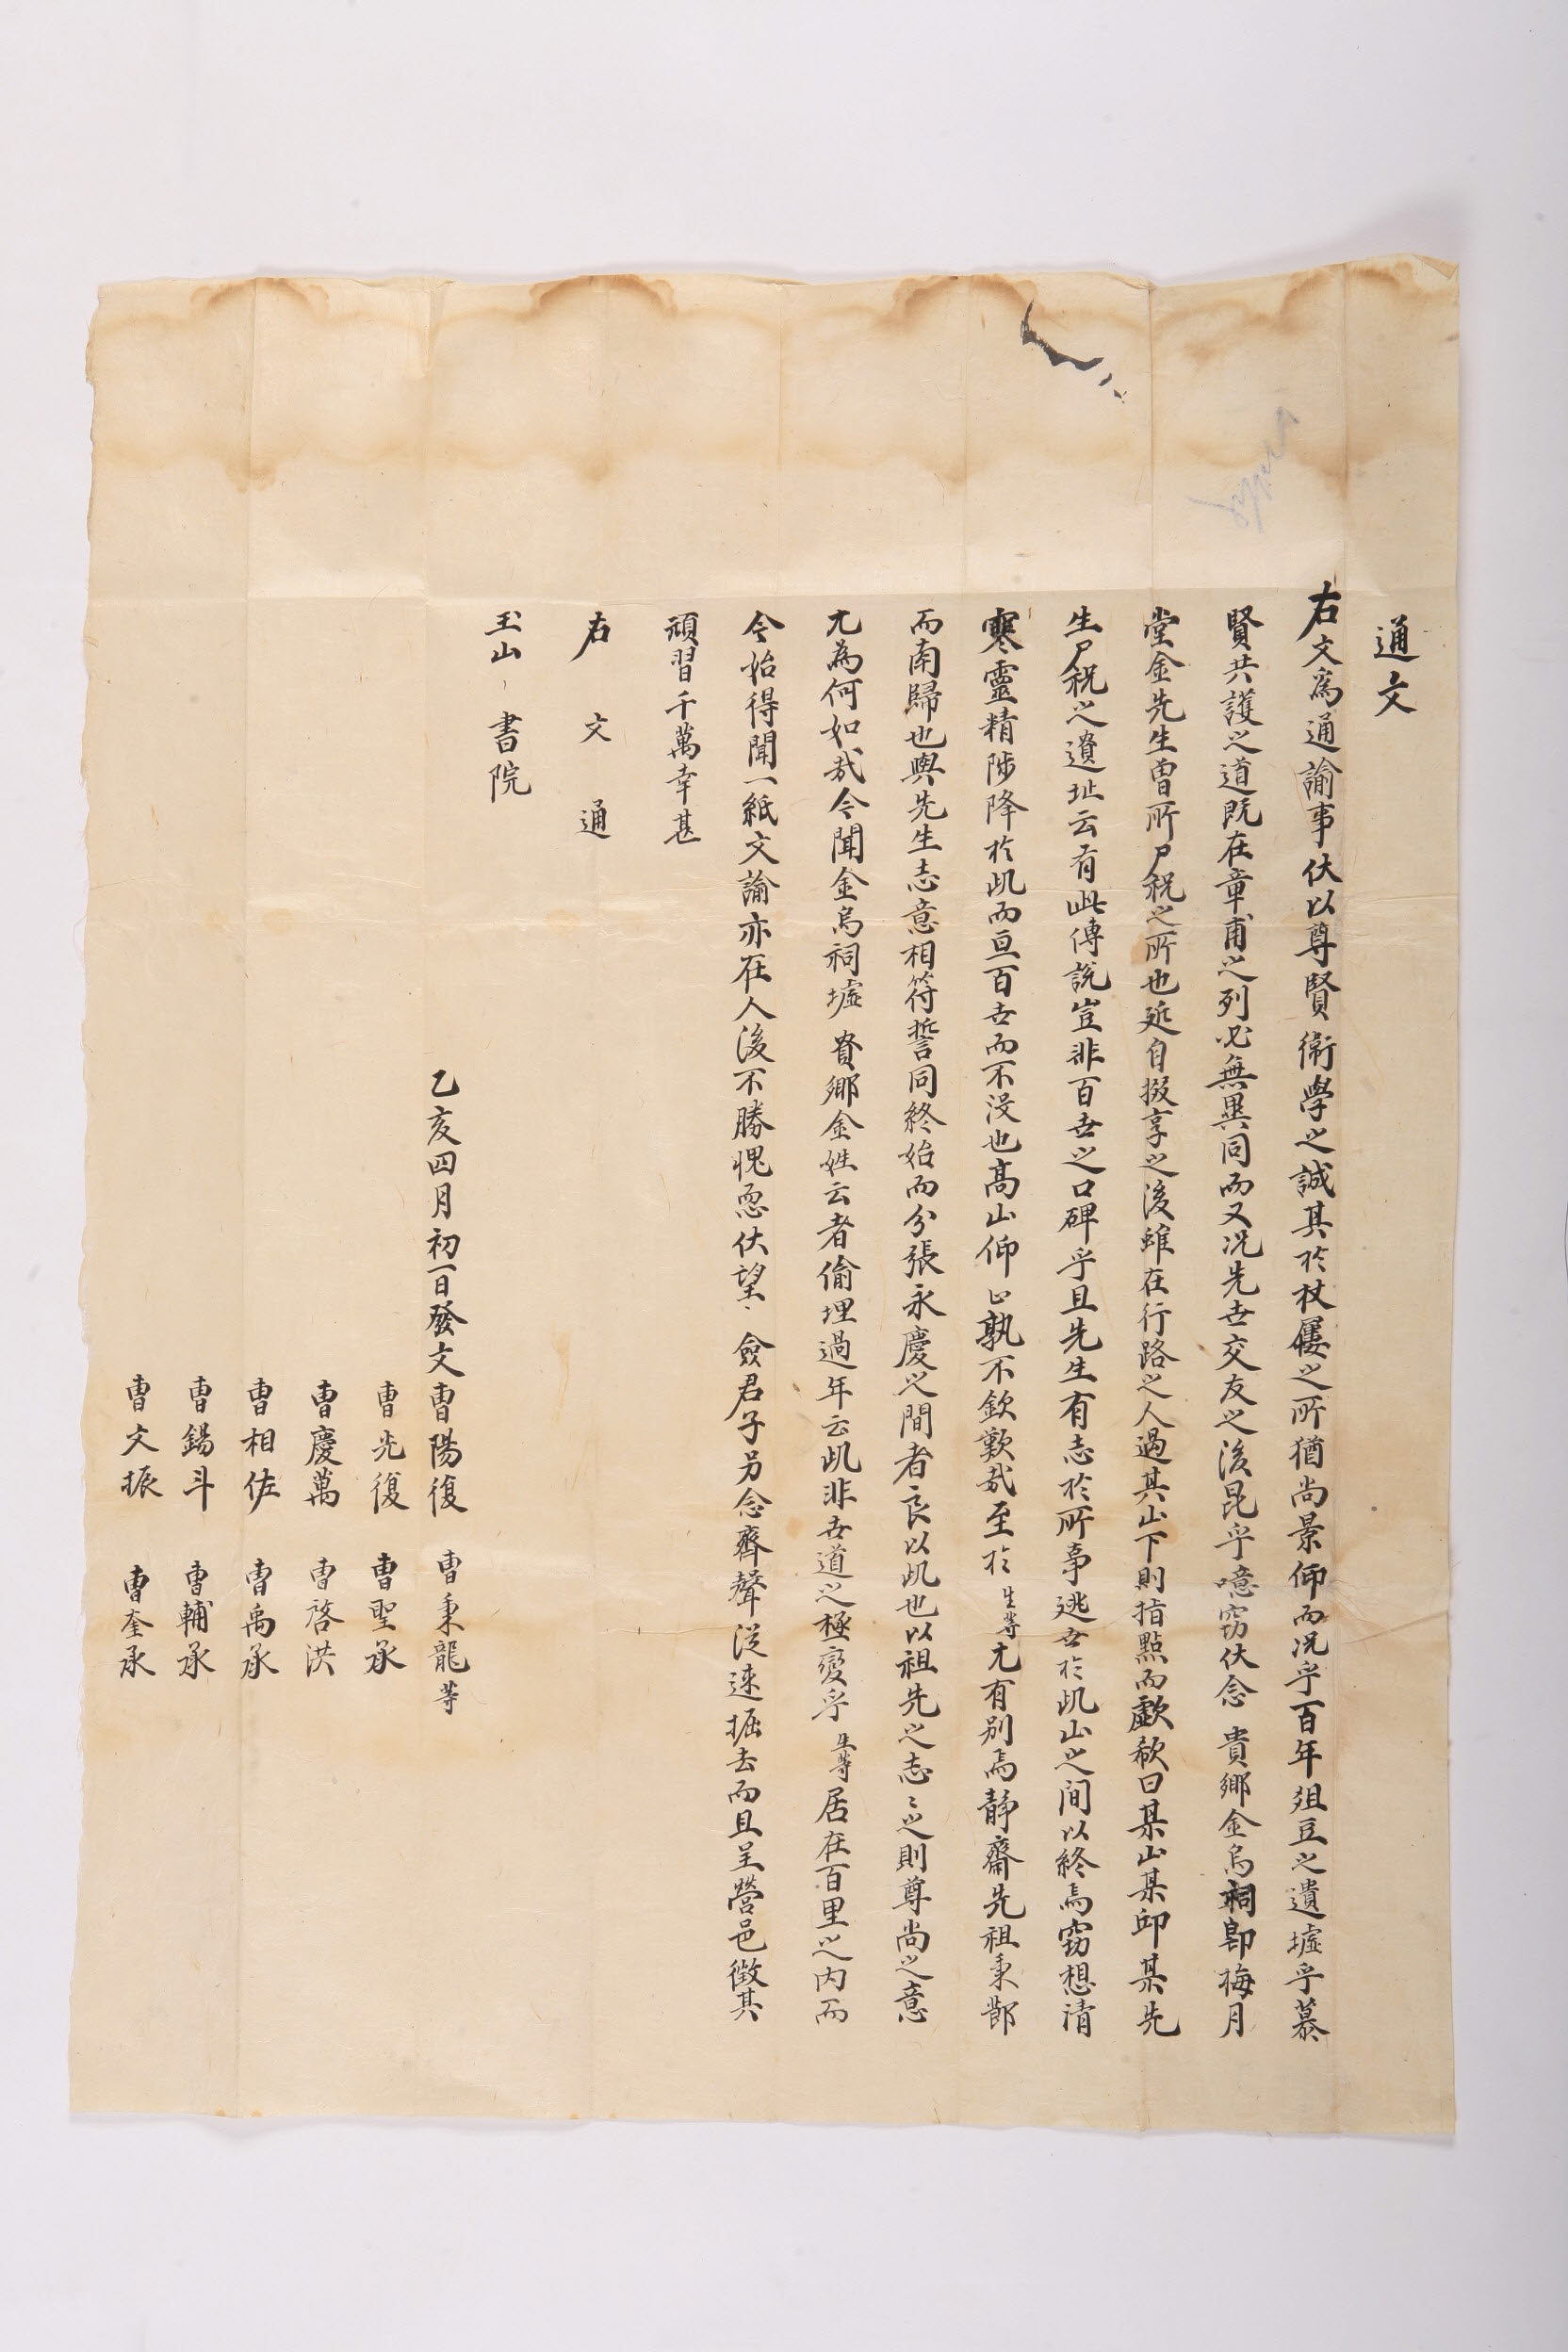 通文
右文爲通諭事伏以尊賢衛學之誠其於杖屨之所猶尚景仰而况乎百年俎豆之遺墟乎慕
賢共護之道既在章甫之列必無異同而又况先世交友之後昆乎噫窃伏念 貴鄉金烏祠卽梅月
堂金先生曾所尸祝之所也延自掇享之後雖在行路之人過其山下則指點而歔欷曰某山某邱某先
生尸祝之遺址云有此傳說豈非百世之口碑乎且先生有志於所事逃世於此山之間以終焉窃想清
寒靈精陟降於此而亘百世而不沒也高山仰止孰不欽歎哉至於生等尤有別焉靜齋先祖秉節
而南歸也與先生志意相符誓同終始而分張永慶之間者良以此也以祖先之志〻之則尊尚之意
尤為何如哉今聞金烏祠墟 貴鄉金姓云者偷埋過年云此非世道之極變乎生等居在百里之內而
今始得聞一紙文諭亦在人後不勝愧恧伏望 僉君子另念齊聲從速掘去而且呈營邑徵其
頑習千萬幸甚
右文通
玉山書院
乙亥四月初一日發文曺陽復 曺秉龍等
曺光復 曺聖承
曺慶萬 曺啓洪
曺相佐 曺禹承
曺錫斗 曺輔承
曺文振 曺奎承